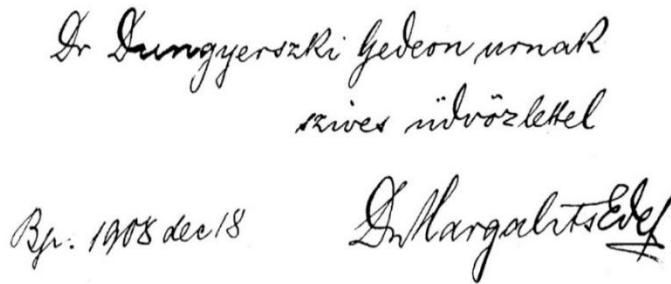 Dr Dungyerszki Gedeon urnak
szives üdvözlettel
Bp. 1908 dec 18
Dr Margalits Ede